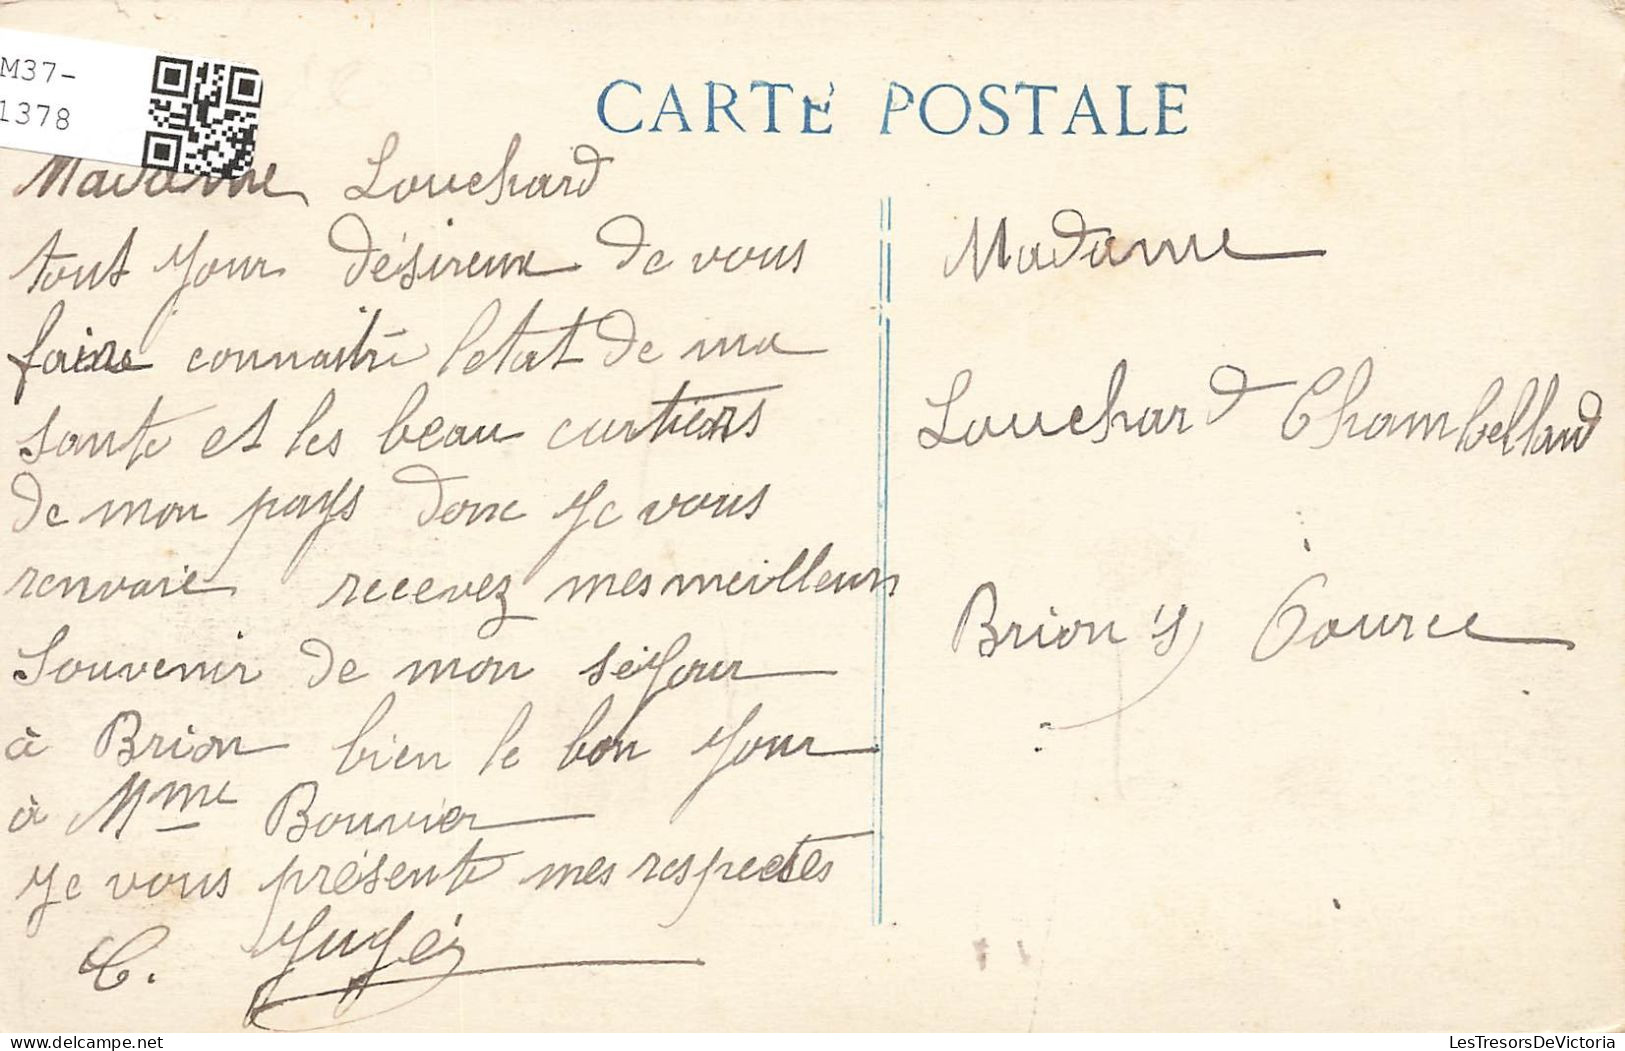 M37-
1378
CARTE POSTALE
Madame Louchard
tout Jour désireux de vous
faire connaitre letat de ma
sante et les beau cartiers
de mon pays donc Je vous
renvoie recevez mes meilleurs
Souvenir de mon séJour
à Brion bien le bon Jour
à Mme Bouvier
Je vous présente mes respectes
C.
Madame
Louchard Chambelland
Brion
LesTresorsDeVictoria